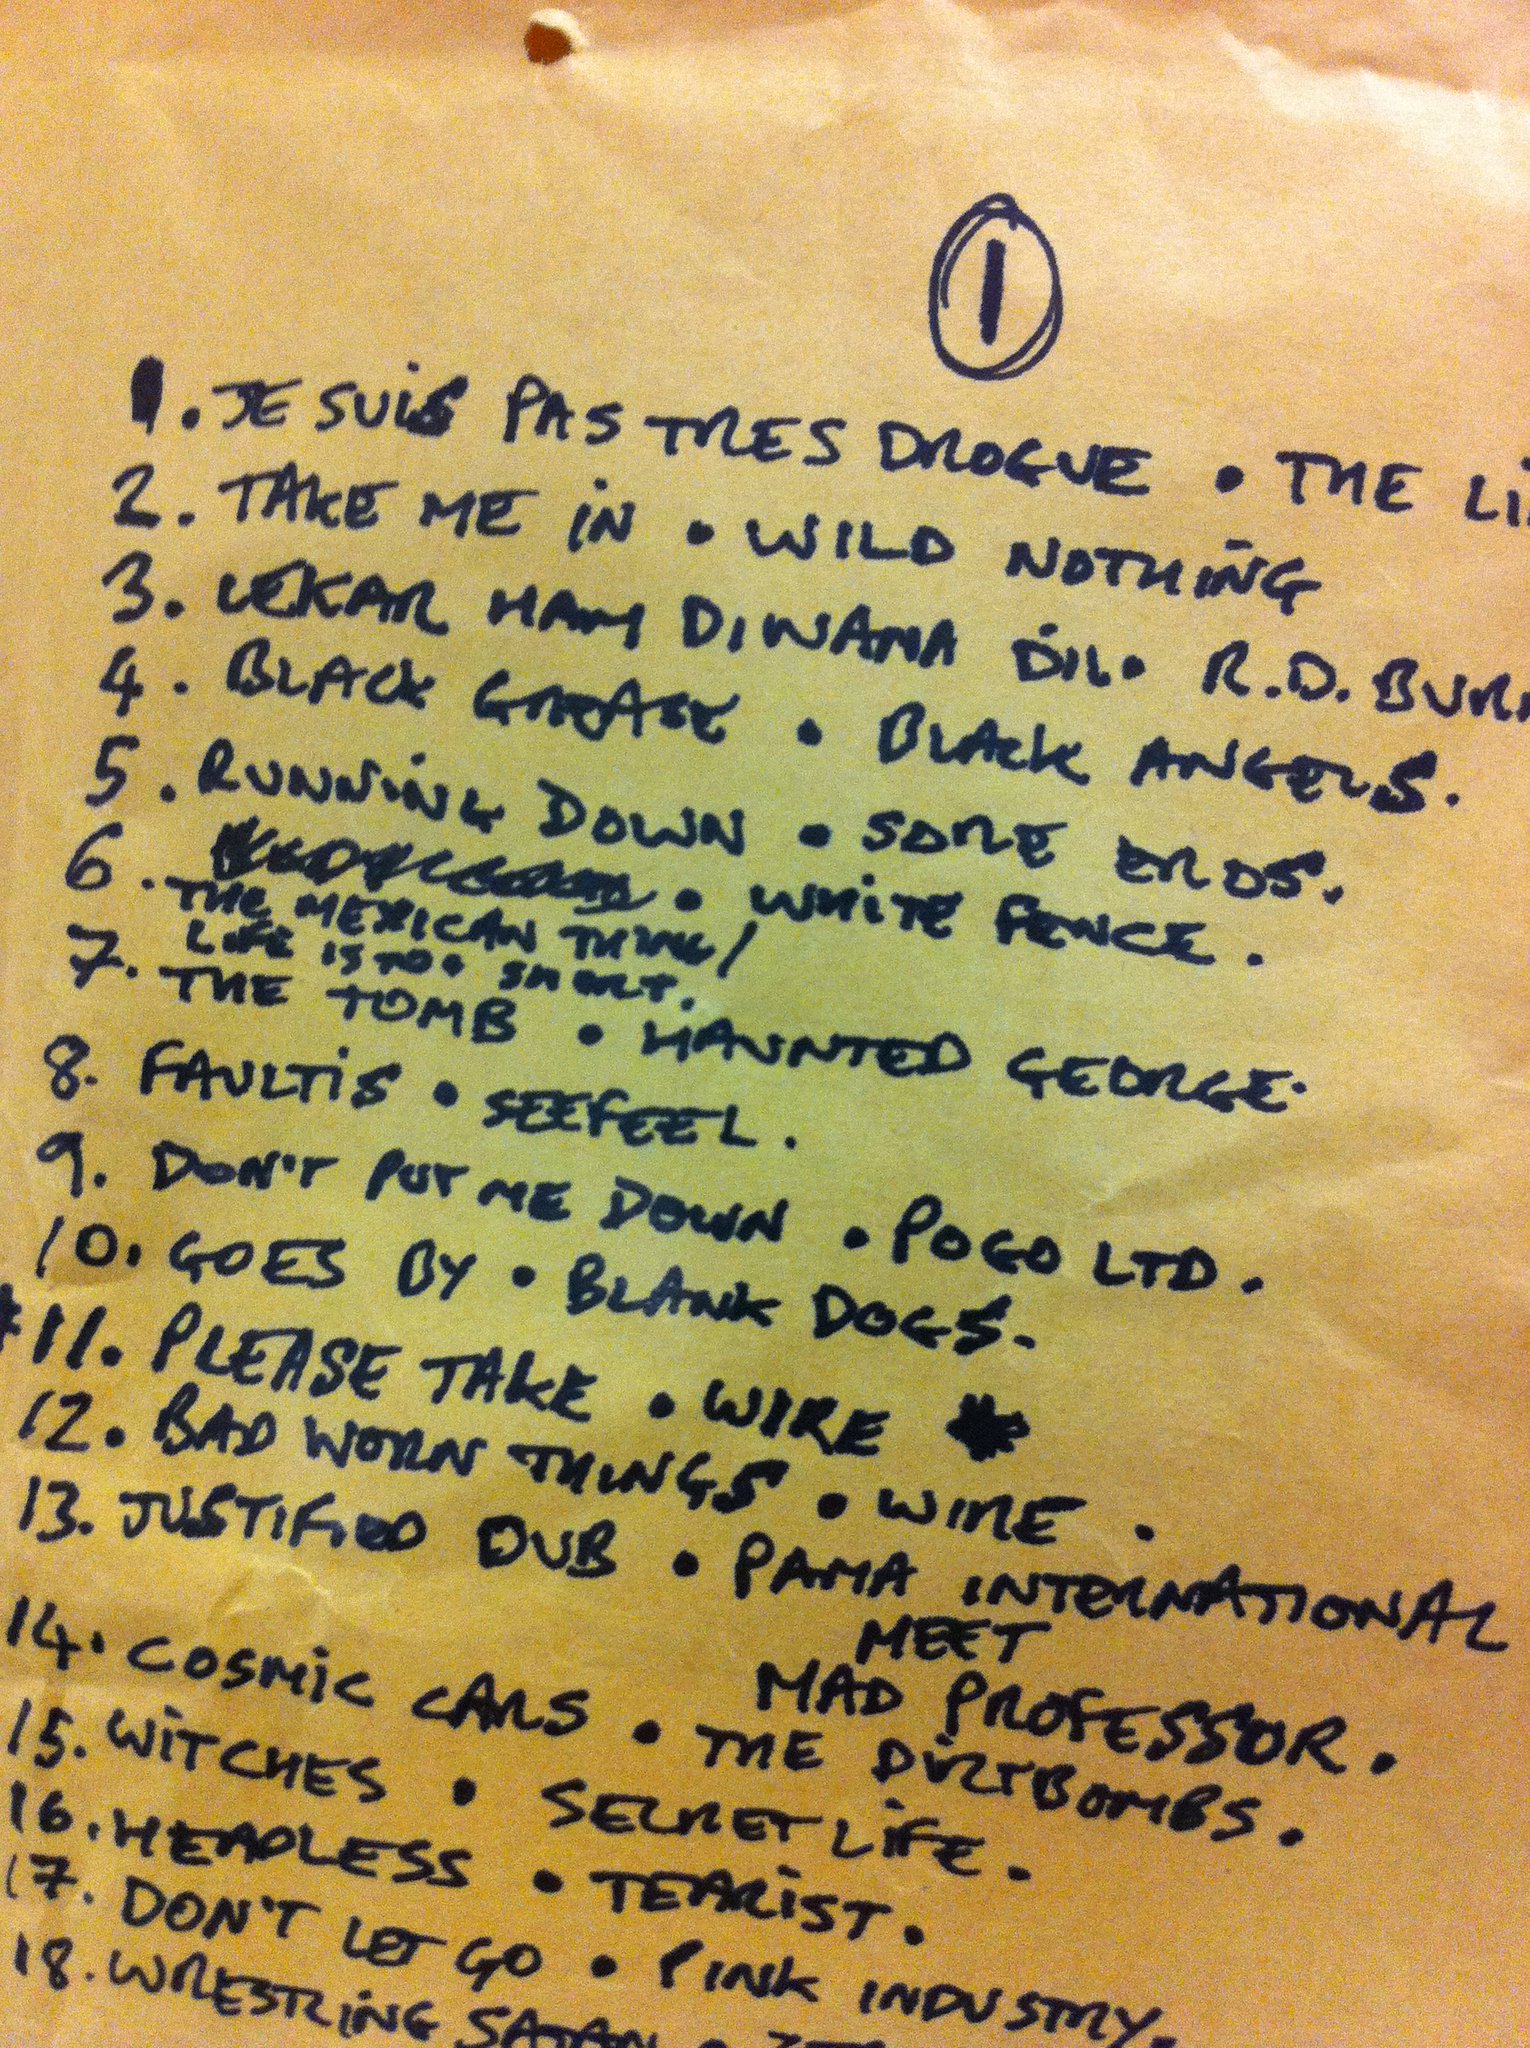 1
1. JE SUIS PAS TRES DROGUE • THE
2. TAKE ME IN • WILD NOTHING
3. LEKAR HAM DIWANA DIL • R.D.
4. BLACK GREASE • BLACK ANGELS.
5. RUNNING DOWN • SORE EROS.
6. • WHITE FENCE.
THE MEXICAN THING/
LIFE IS TOO SHORT.
7. THE TOMB • HAUNTED GEORGE.
8. FAULTIS • SEEFEEL.
9. DON'T PUT ME DOWN • POGO LTD.
10. GOES BY • BLANK DOGS.
* 11. PLEASE TAKE • WIRE *
12. BAD WORN THINGS • WIRE.
13. JUSTIFIED DUB • PAMA INTERNATIONAL
MEET
MAD PROFESSOR.
14. COSMIC CARS • THE DIRTBOMBS.
15. WITCHES • SECRET LIFE.
16. HEADLESS • TEARIST.
17. DON'T LET GO • PINK INDUSTRY.
18. WRESTLING SATAN •